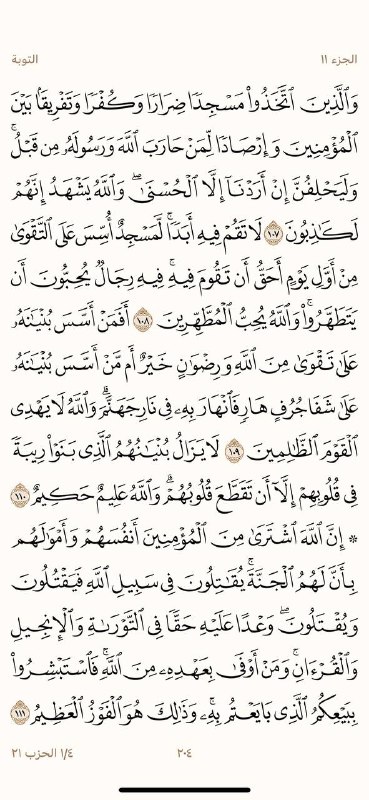 الجزء ١١
التوبة
وَٱلَّذِينَ ٱتَّخَذُوا۟ مَسْجِدًا ضِرَارًا وَكُفْرًا وَتَفْرِيقًۢا بَيْنَ
ٱلْمُؤْمِنِينَ وَإِرْصَادًا لِّمَنْ حَارَبَ ٱللَّهَ وَرَسُولَهُۥ مِن قَبْلُ ۚ
وَلَيَحْلِفُنَّ إِنْ أَرَدْنَآ إِلَّا ٱلْحُسْنَىٰ ۖ وَٱللَّهُ يَشْهَدُ إِنَّهُمْ
لَكَـٰذِبُونَ ١٠٧ لَا تَقُمْ فِيهِ أَبَدًا ۚ لَّمَسْجِدٌ أُسِّسَ عَلَى ٱلتَّقْوَىٰ
مِنْ أَوَّلِ يَوْمٍ أَحَقُّ أَن تَقُومَ فِيهِ ۚ فِيهِ رِجَالٌ يُحِبُّونَ أَن
يَتَطَهَّرُوا۟ ۚ وَٱللَّهُ يُحِبُّ ٱلْمُطَّهِّرِينَ ١٠٨ أَفَمَنْ أَسَّسَ بُنْيَـٰنَهُۥ
عَلَىٰ تَقْوَىٰ مِنَ ٱللَّهِ وَرِضْوَٰنٍ خَيْرٌ أَم مَّنْ أَسَّسَ بُنْيَـٰنَهُۥ
عَلَىٰ شَفَا جُرُفٍ هَارٍ فَٱنْهَارَ بِهِۦ فِى نَارِ جَهَنَّمَ ۗ وَٱللَّهُ لَا يَهْدِى
ٱلْقَوْمَ ٱلظَّـٰلِمِينَ ١٠٩ لَا يَزَالُ بُنْيَـٰنُهُمُ ٱلَّذِى بَنَوْا۟ رِيبَةً
فِى قُلُوبِهِمْ إِلَّآ أَن تَقَطَّعَ قُلُوبُهُمْ ۗ وَٱللَّهُ عَلِيمٌ حَكِيمٌ ١١٠
۞ إِنَّ ٱللَّهَ ٱشْتَرَىٰ مِنَ ٱلْمُؤْمِنِينَ أَنفُسَهُمْ وَأَمْوَٰلَهُم
بِأَنَّ لَهُمُ ٱلْجَنَّةَ ۚ يُقَـٰتِلُونَ فِى سَبِيلِ ٱللَّهِ فَيَقْتُلُونَ
وَيُقْتَلُونَ ۖ وَعْدًا عَلَيْهِ حَقًّا فِى ٱلتَّوْرَىٰةِ وَٱلْإِنجِيلِ
وَٱلْقُرْءَانِ ۚ وَمَنْ أَوْفَىٰ بِعَهْدِهِۦ مِنَ ٱللَّهِ ۚ فَٱسْتَبْشِرُوا۟
بِبَيْعِكُمُ ٱلَّذِى بَايَعْتُم بِهِۦ ۚ وَذَٰلِكَ هُوَ ٱلْفَوْزُ ٱلْعَظِيمُ ١١١
٢٠٤
١/٤ الحزب ٢١